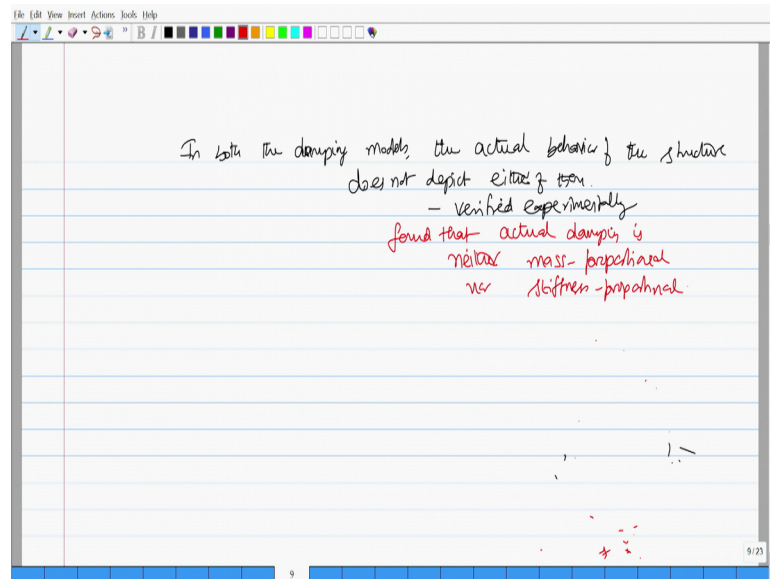 File Edit View Insert Actions Tools Help
B I
In both the damping models, the actual behavior of the structure
does not depict either of them.
- verified experimentally
found that actual damping is
neither mass-proportional
nor stiffness-proportional.
9/23
9